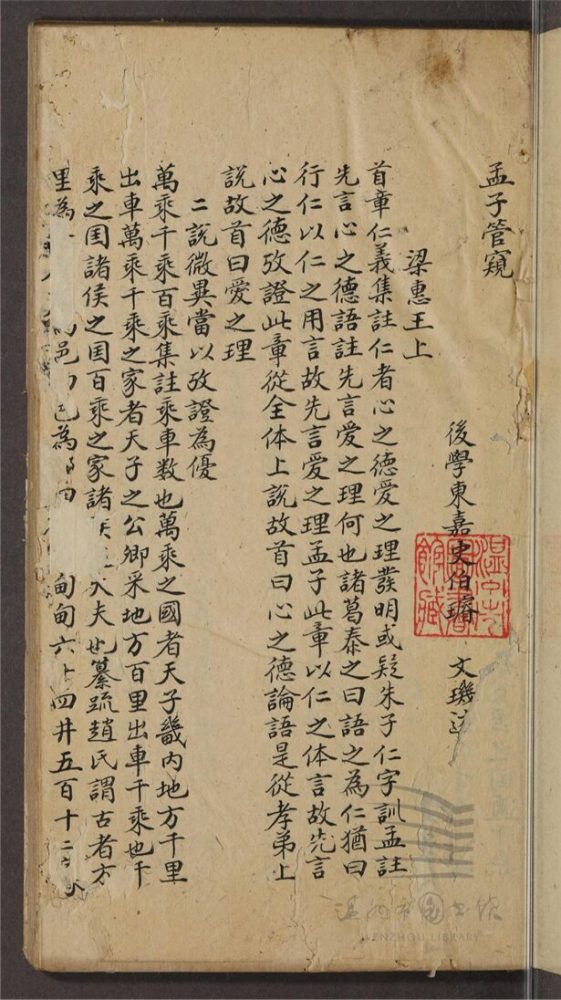 孟子管窺
後學東嘉史伯璿 文璣
梁惠王上
首章仁義集註仁者心之德愛之理發明或疑朱子仁字訓孟註
先言心之德語註先言愛之理何也諸葛泰之曰語之為仁猶曰
行仁以仁之用言故先言愛之理孟子此章以仁之体言故先言
心之德攷證此章從全体上說故首曰心之德論語是從孝弟上
說故首曰愛之理
二說微異當以攷證為優
萬乘千乘百乘集註乘車数也萬乘之國者天子畿内地方千里
出車萬乘千乘之家者天子之公卿采地方百里出車千乘也千
乘之国諸侯之国百乘之家諸 大夫也纂疏趙氏謂古者方
里為 邑 為 甸甸六十四井五百十二
温州市圖書館藏
温州市图书馆
WENZHOU LIBRARY